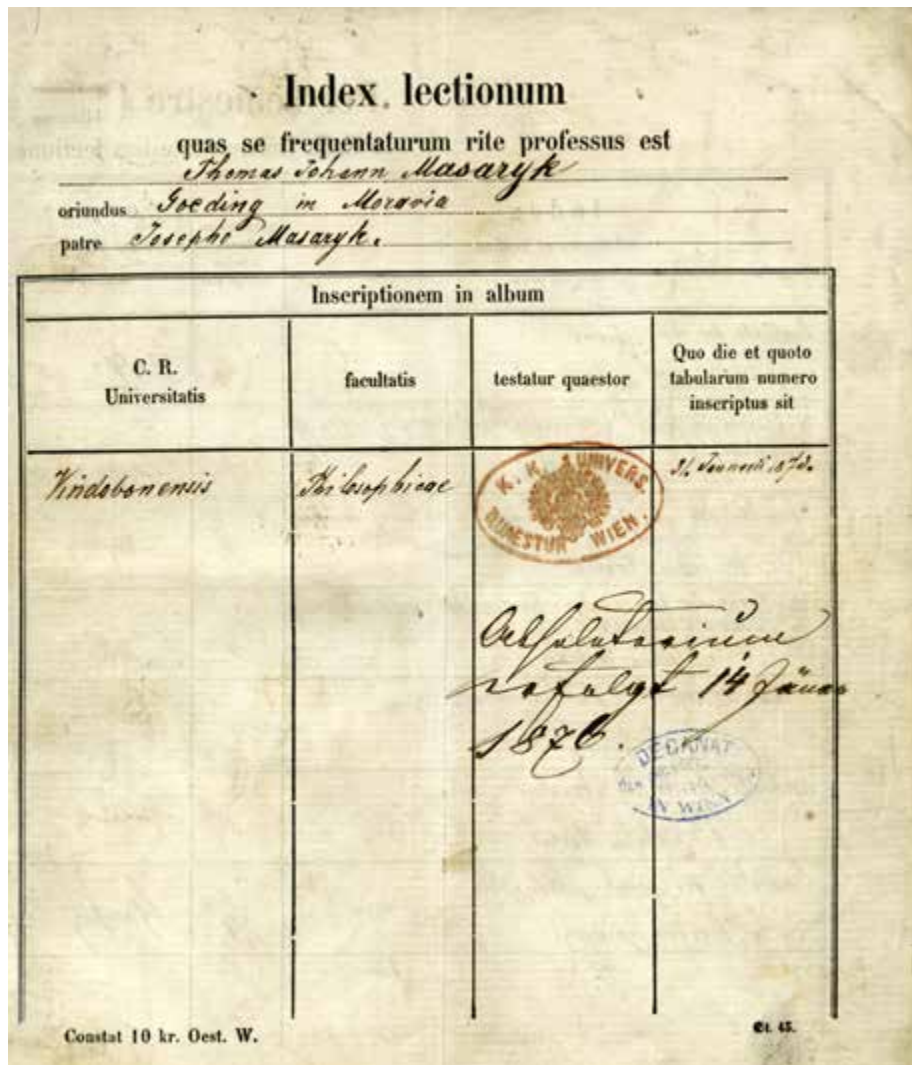 Index lectionum
quas se frequentaturum rite professus est
Thomas Johann Masaryk
oriundus Goeding in Moravia
patre Josepho Masaryk.
Inscriptionem in album
C. R.
Universitatis
facultatis
testatur quaestor
Quo die et quoto
tabularum numero
inscriptus sit
Vindobonensis
Philosophicae
K. K. UNIVERS.
QUAESTUR WIEN.
31.
Absolutorium
erfolgt 14 Jänner
1876.
DECANAT
IN WIEN
Constat 10 kr. Oest. W.
St. 45.